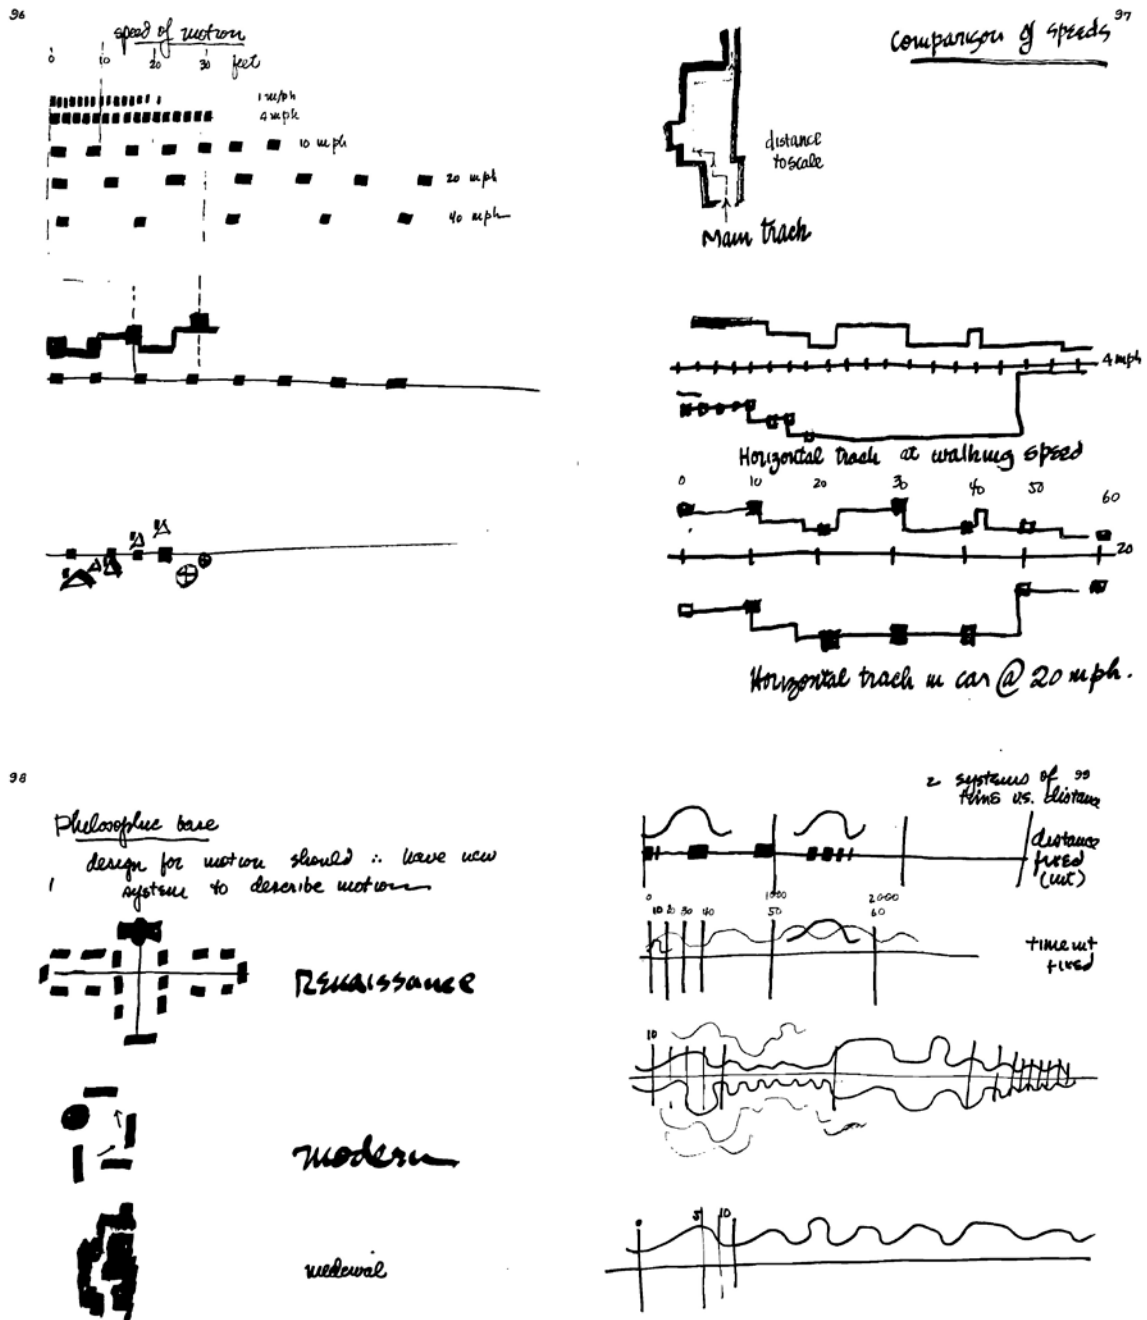 96
speed of motion
0 10 20 30 feet
1 mph
4 mph
10 mph
20 mph
40 mph
97
Comparison of speeds
distance
to scale
Main track
4 mph
Horizontal track at walking speed
0 10 20 30 40 50 60
20
Horizontal track in car @ 20 mph.
98
Philosophic base
design for motion should ∴ have new
1 system to describe motion
Renaissance
modern
medieval
99
2 systems of
time vs. distance
distance
fixed
(unt)
0 1000 2000
10 20 30 40 50 60
time unt
fixed
10
0 5 10